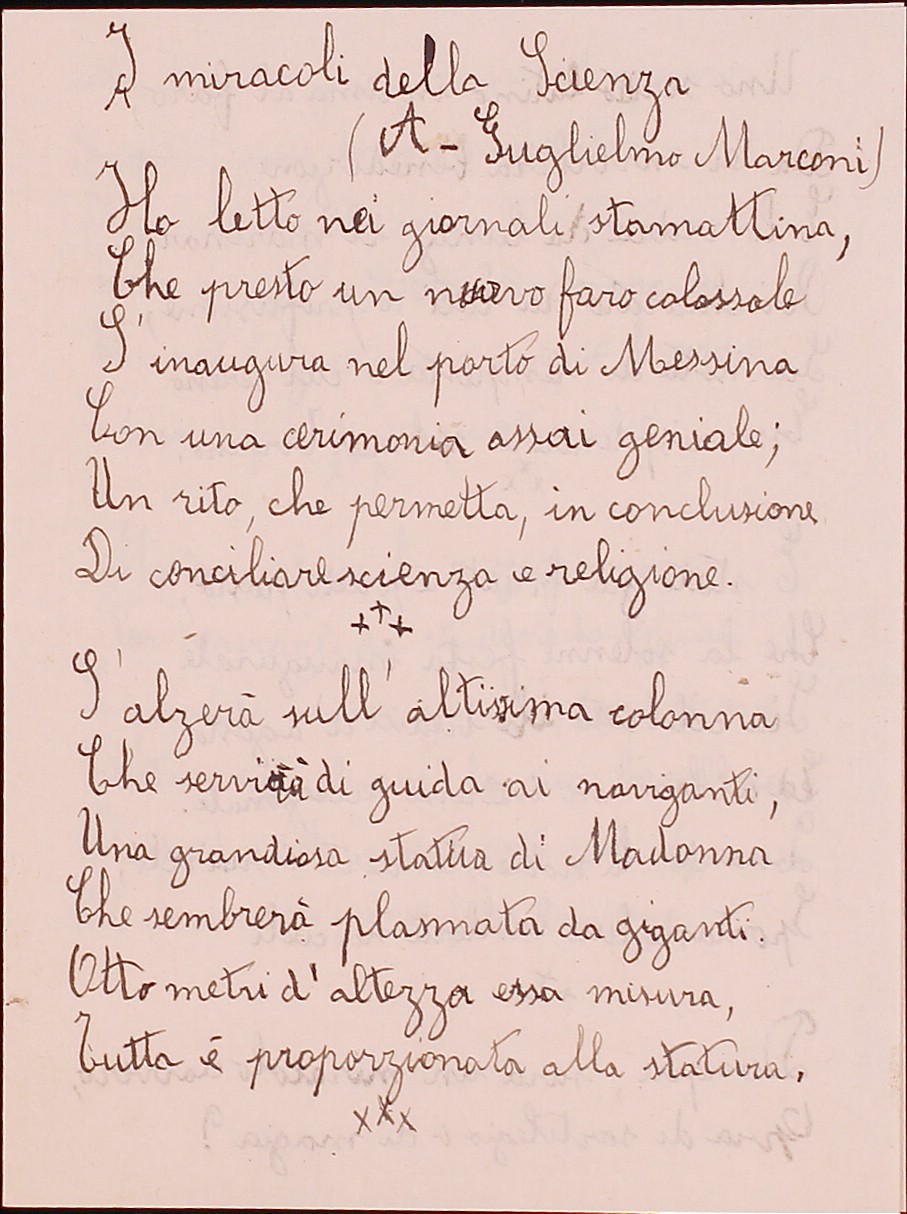 I miracoli della Scienza
(A - Guglielmo Marconi)
Ho letto nei giornali stamattina,
Che presto un nuovo faro colossale
S'inaugura nel porto di Messina
Con una cerimonia assai geniale;
Un rito, che permetta, in conclusione
Di conciliare scienza e religione.
+++
S'alzerà sull'altissima colonna
Che servirà di guida ai naviganti,
Una grandiosa statua di Madonna
Che sembrerà plasmata da giganti.
Otto metri d'altezza essa misura,
Tutta é proporzionata alla statura.
xxx